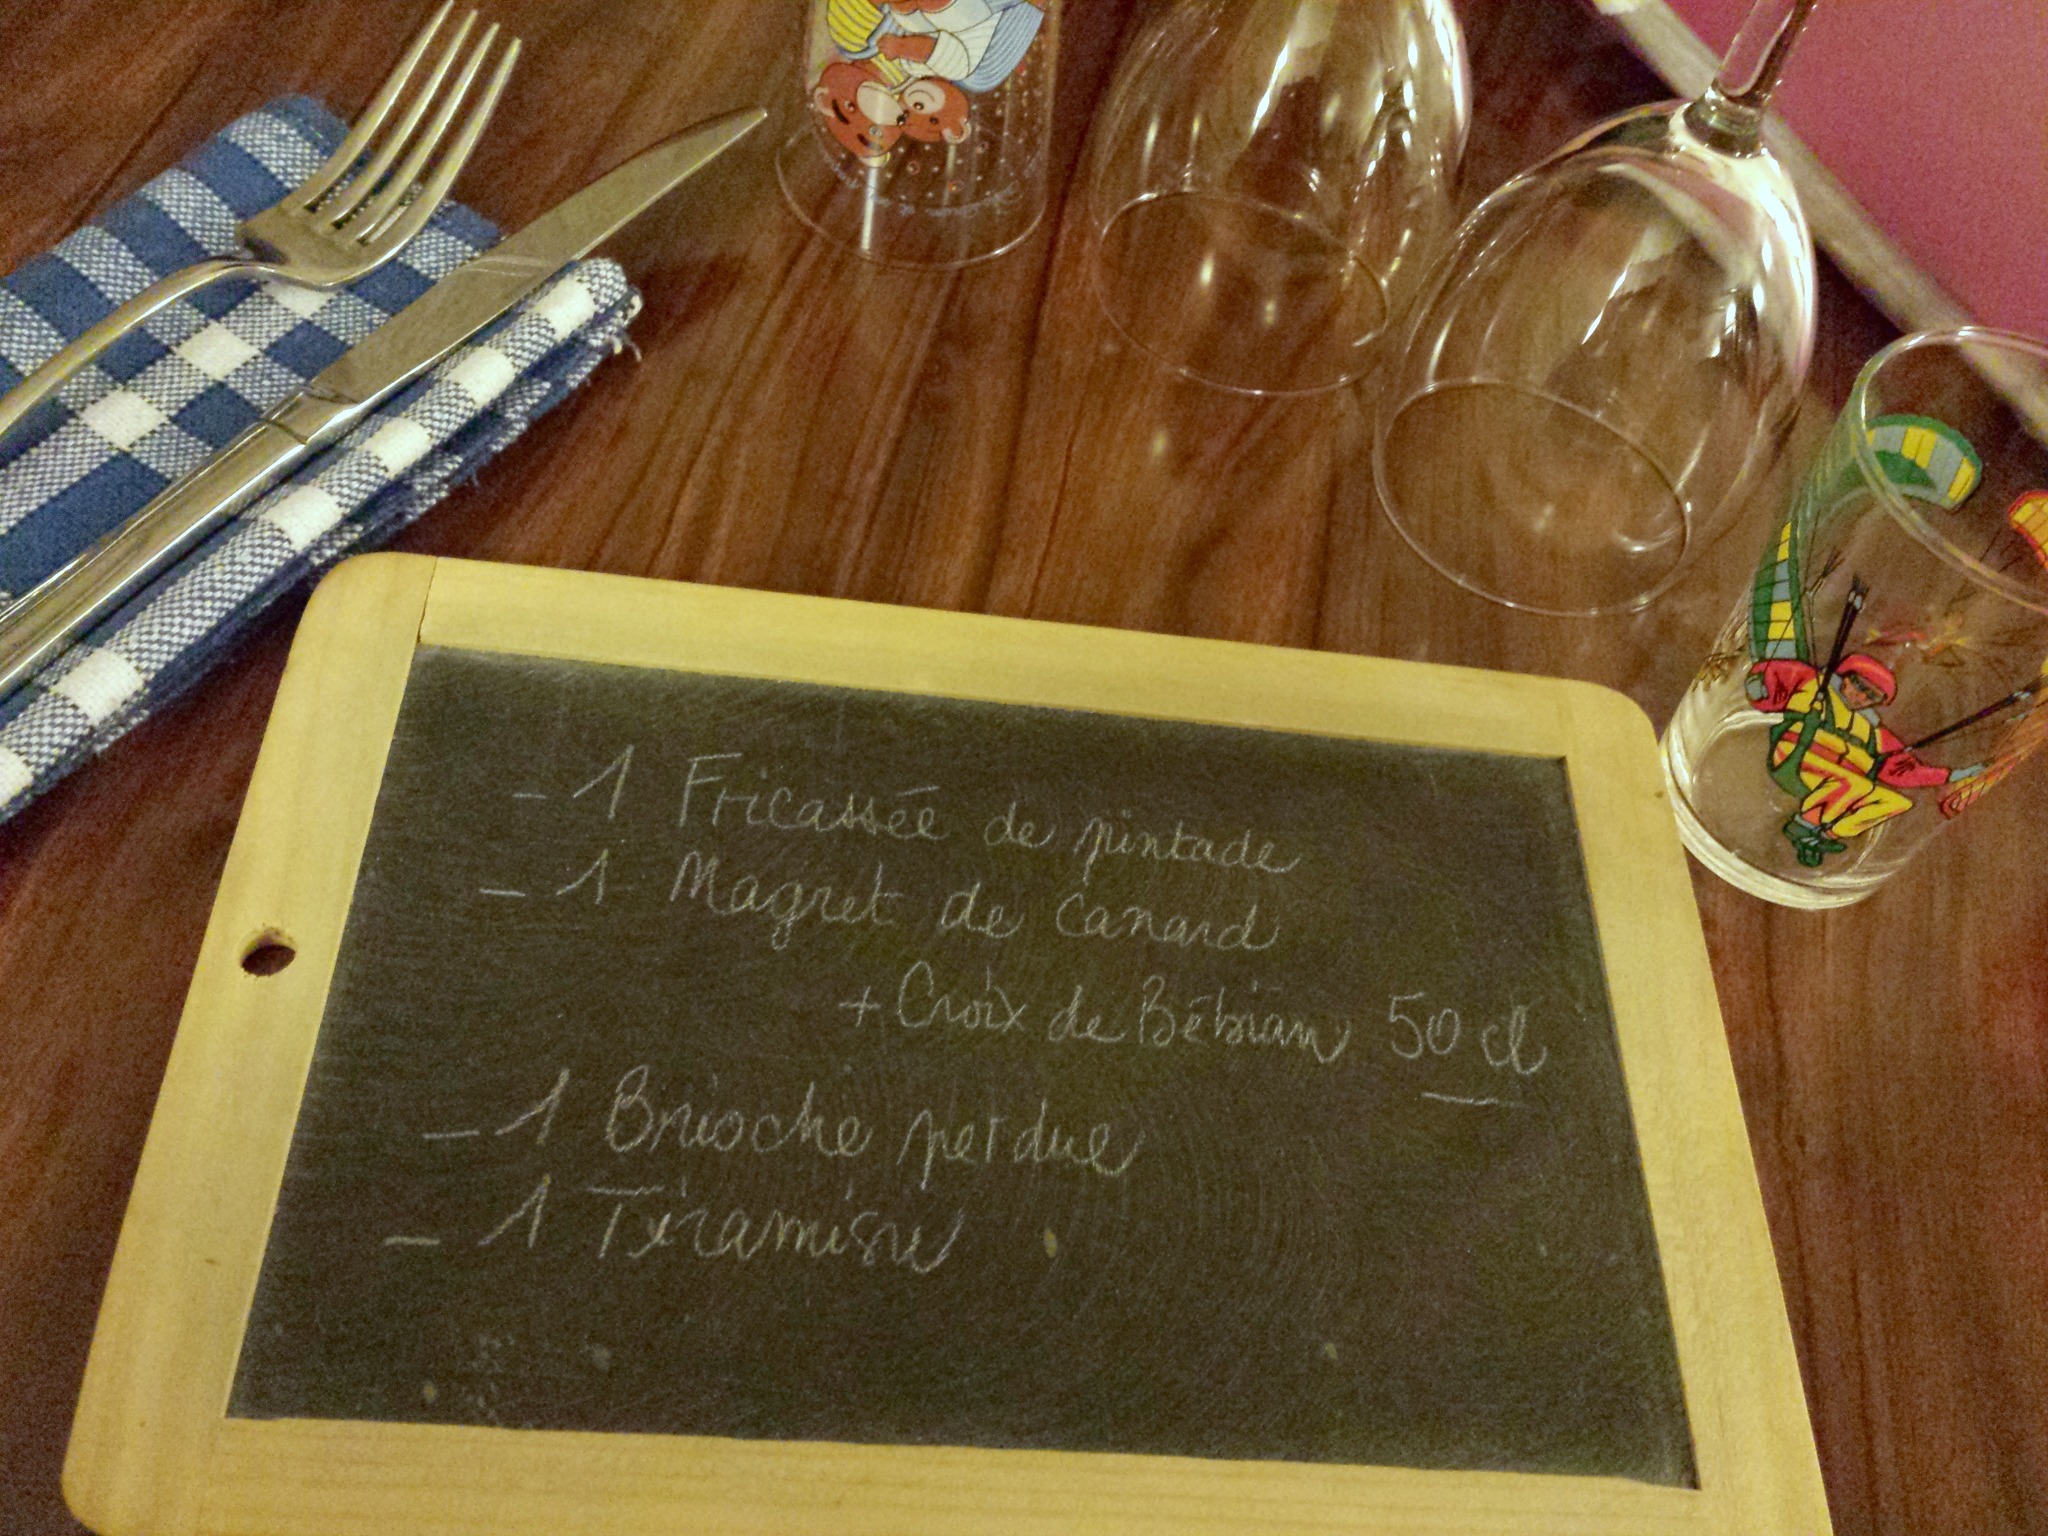 - 1 Fricassée de pintade
- 1 Magret de canard
+ Croix de Bébian 50 cl
- 1 Brioche perdue
- 1 Tiramisu